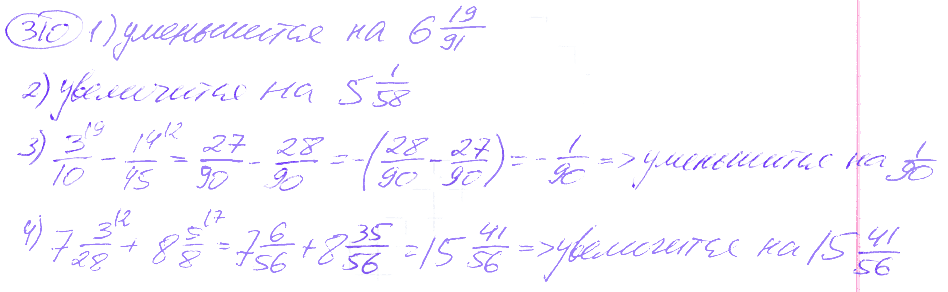 310 1) уменьшится на 6 19/91
2) увеличится на 5 1/58
3) 3/10 |9 - 14/45 |2 = 27/90 - 28/90 = -(28/90 - 27/90) = - 1/90 => уменьшится на 1/90
4) 7 3/28 |2 + 8 5/8 |7 = 7 6/56 + 8 35/56 = 15 41/56 => увеличится на 15 41/56